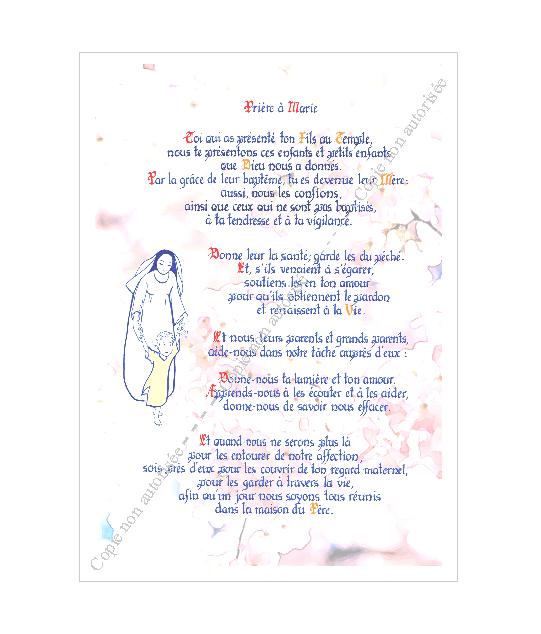 Prière à Marie
Toi qui as présenté ton Fils au Temple,
nous te présentons ces enfants et petits enfants
que Dieu nous a donnés.
Par la grâce de leur baptême, tu es devenue leur Mère:
aussi, nous les confions,
ainsi que ceux qui ne sont pas baptisés,
à ta tendresse et à ta vigilance.
Donne leur la santé; garde les du péché.
Et, s'ils venaient à s'égarer,
soutiens les en ton amour
pour qu'ils obtiennent le pardon
et renaissent à la Vie.
Et nous, leurs parents et grands parents,
aide-nous dans notre tâche auprès d'eux :
Donne-nous ta lumière et ton amour.
Apprends-nous à les écouter et à les aider,
donne-nous de savoir nous effacer.
Et quand nous ne serons plus là
pour les entourer de notre affection,
sois près d'eux pour les couvrir de ton regard maternel,
pour les garder à travers la vie,
afin qu'un jour nous soyons tous réunis
dans la maison du Père.
Copie non autorisée --- Copie non autorisée --- Copie non autorisée